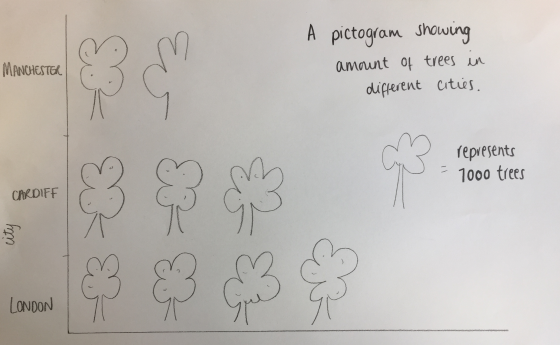 A pictogram showing
amount of trees in
different cities.
MANCHESTER
CARDIFF
LONDON
city
= represents
1000 trees